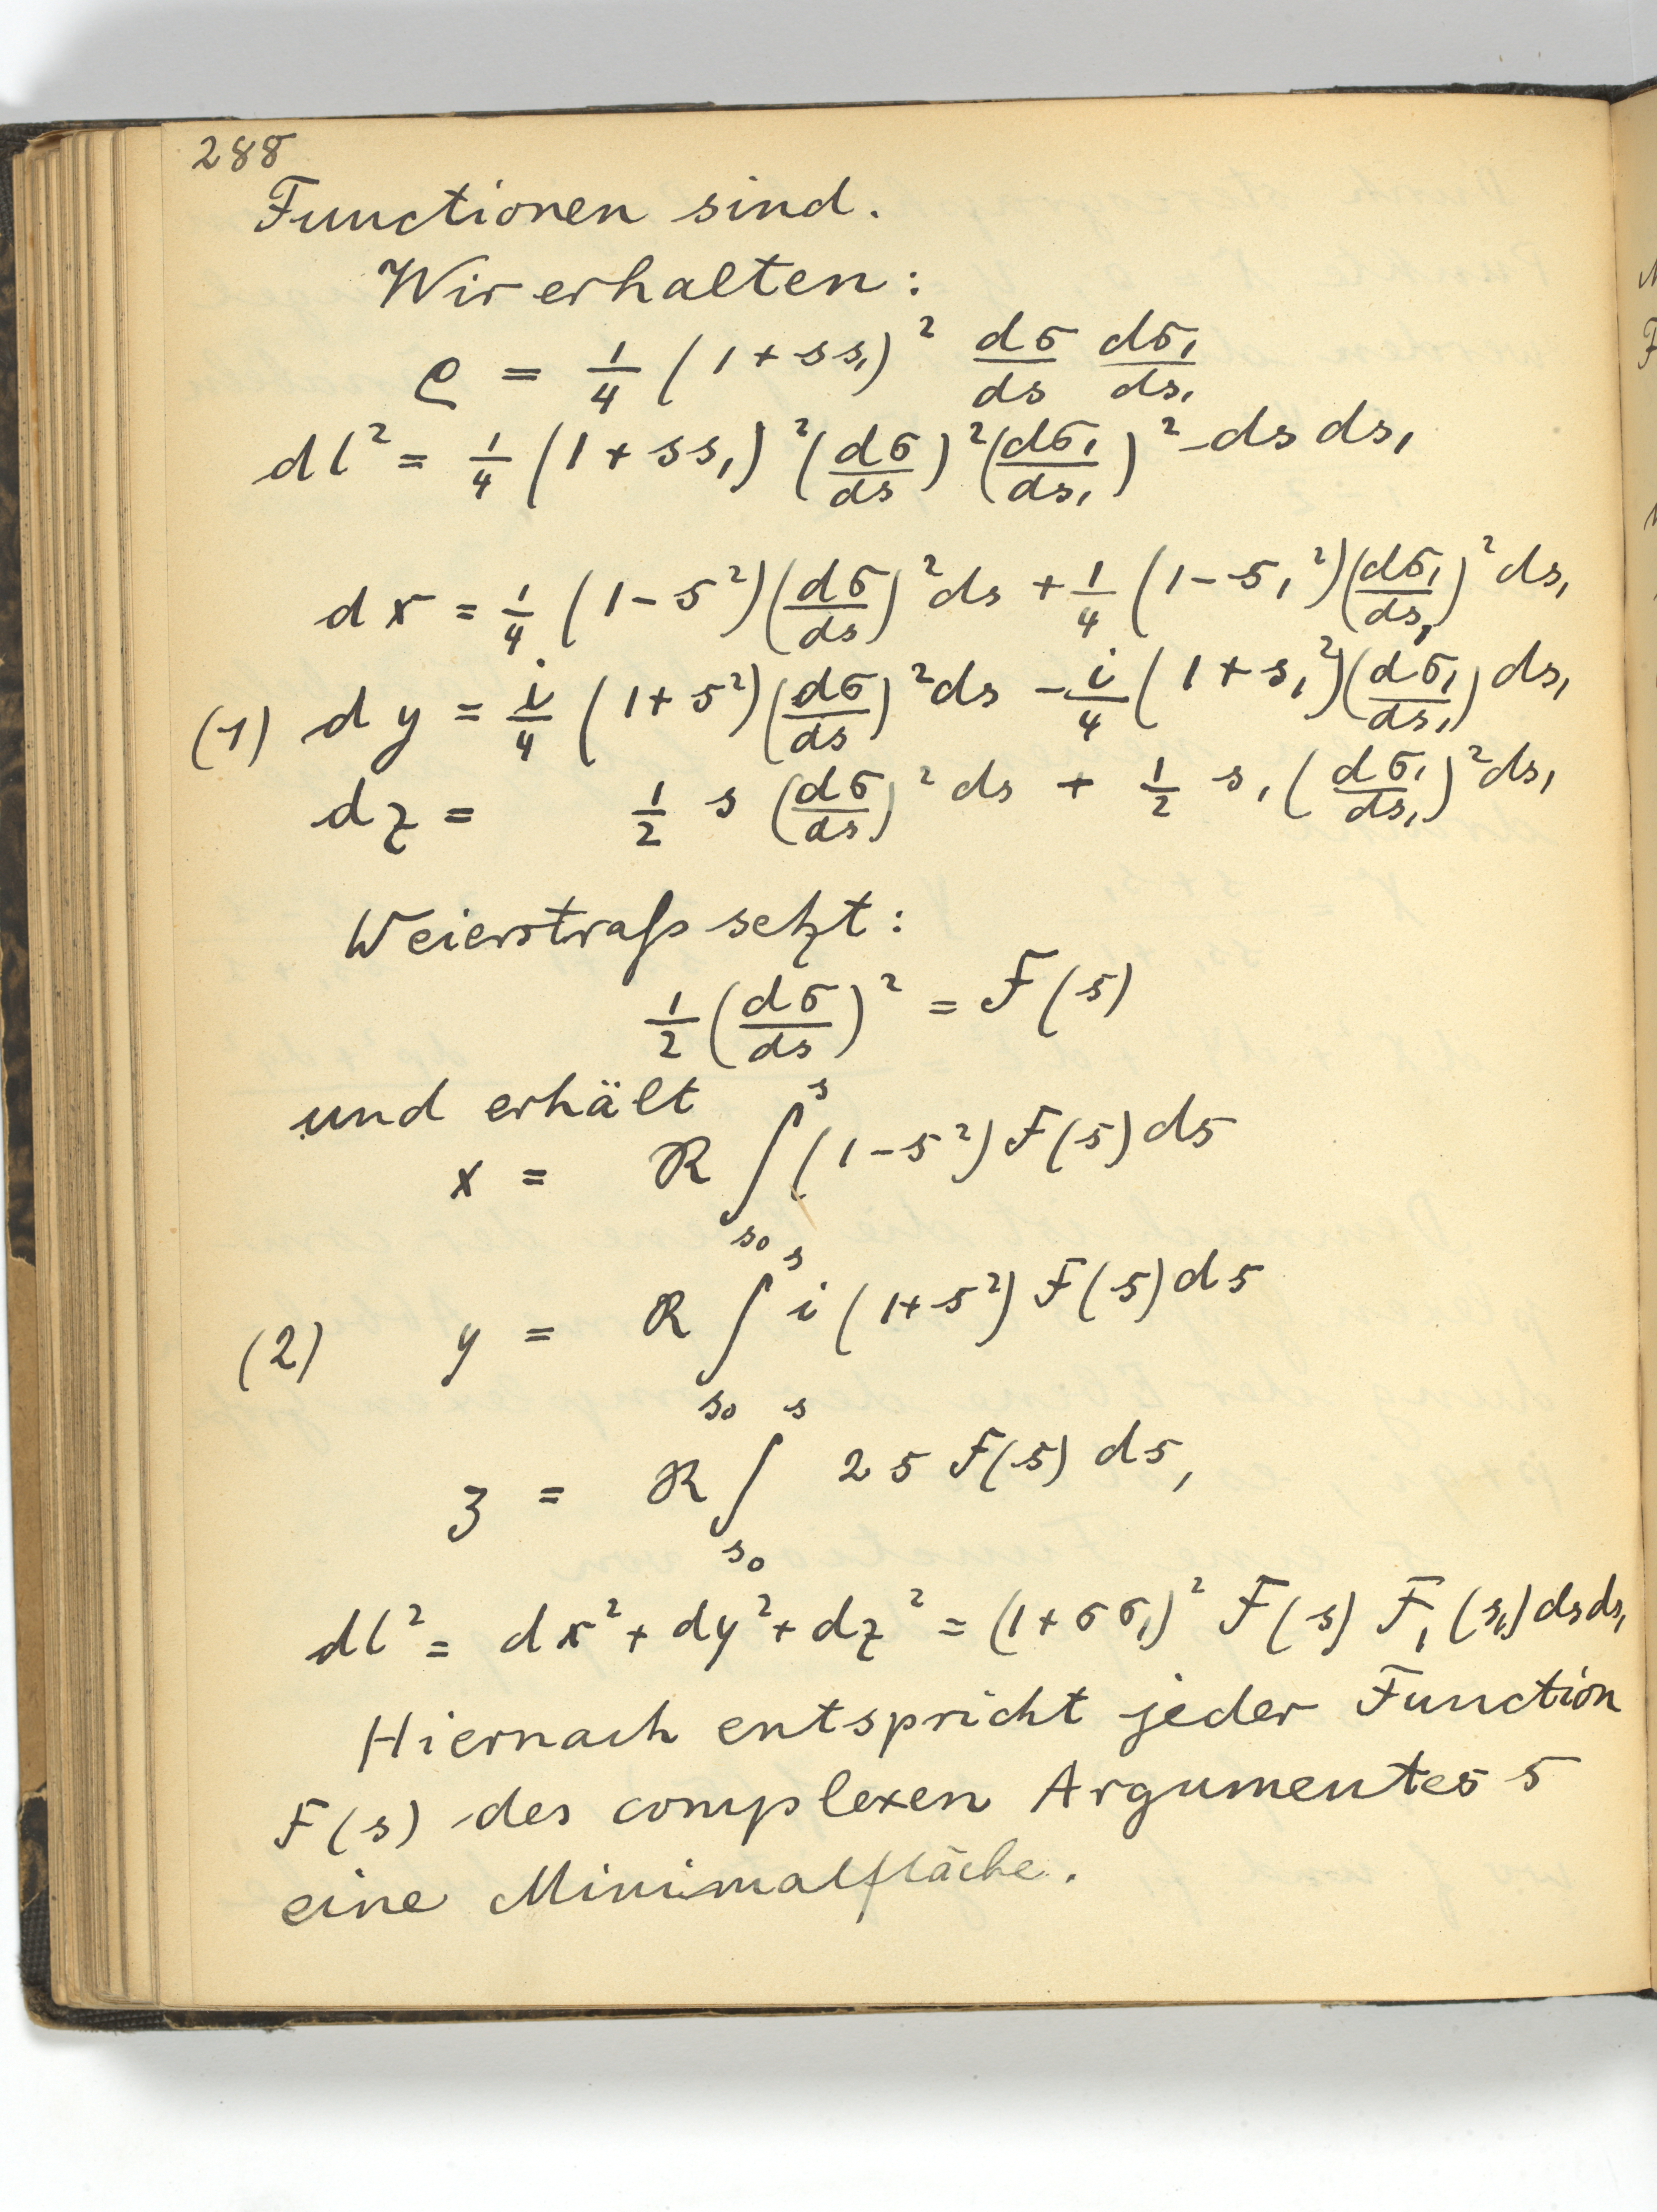 288
Functionen sind.
Wir erhalten:
ρ = 1/4 (1 + ss₁)² dσ/ds dσ₁/ds₁
dl² = 1/4 (1 + ss₁)² (dσ/ds)² (dσ₁/ds₁)² ds ds₁
dx = 1/4 (1 - s²)(dσ/ds)² ds + 1/4 (1 - s₁²)(dσ₁/ds₁)² ds₁
(1) dy = i/4 (1 + s²)(dσ/ds)² ds - i/4 (1 + s₁²)(dσ₁/ds₁) ds₁
dz = 1/2 s (dσ/ds)² ds + 1/2 s₁ (dσ₁/ds₁)² ds₁
Weierstraß setzt:
1/2 (dσ/ds)² = F(s)
und erhält
x = ℜ ∫_{s₀}^{s} (1 - s²) F(s) ds
(2) y = ℜ ∫_{s₀}^{s} i (1 + s²) F(s) ds
z = ℜ ∫_{s₀}^{s} 2 s F(s) ds,
dl² = dx² + dy² + dz² = (1 + σσ₁)² F(s) F₁(s₁) ds ds₁
Hiernach entspricht jeder Function
F(s) des complexen Argumentes s
eine Minimalfläche.